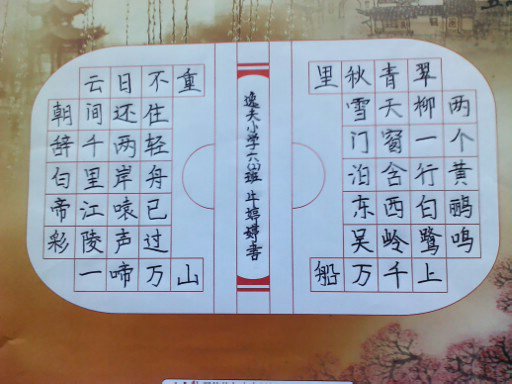 两个黄鹂鸣
翠柳一行白鹭上
青天窗含西岭千
秋雪门泊东吴万
里船
逸夫小学六班 牛婷婷書
朝辞白帝彩
云间千里江陵一
日还两岸猿声啼
不住轻舟已过万
重山